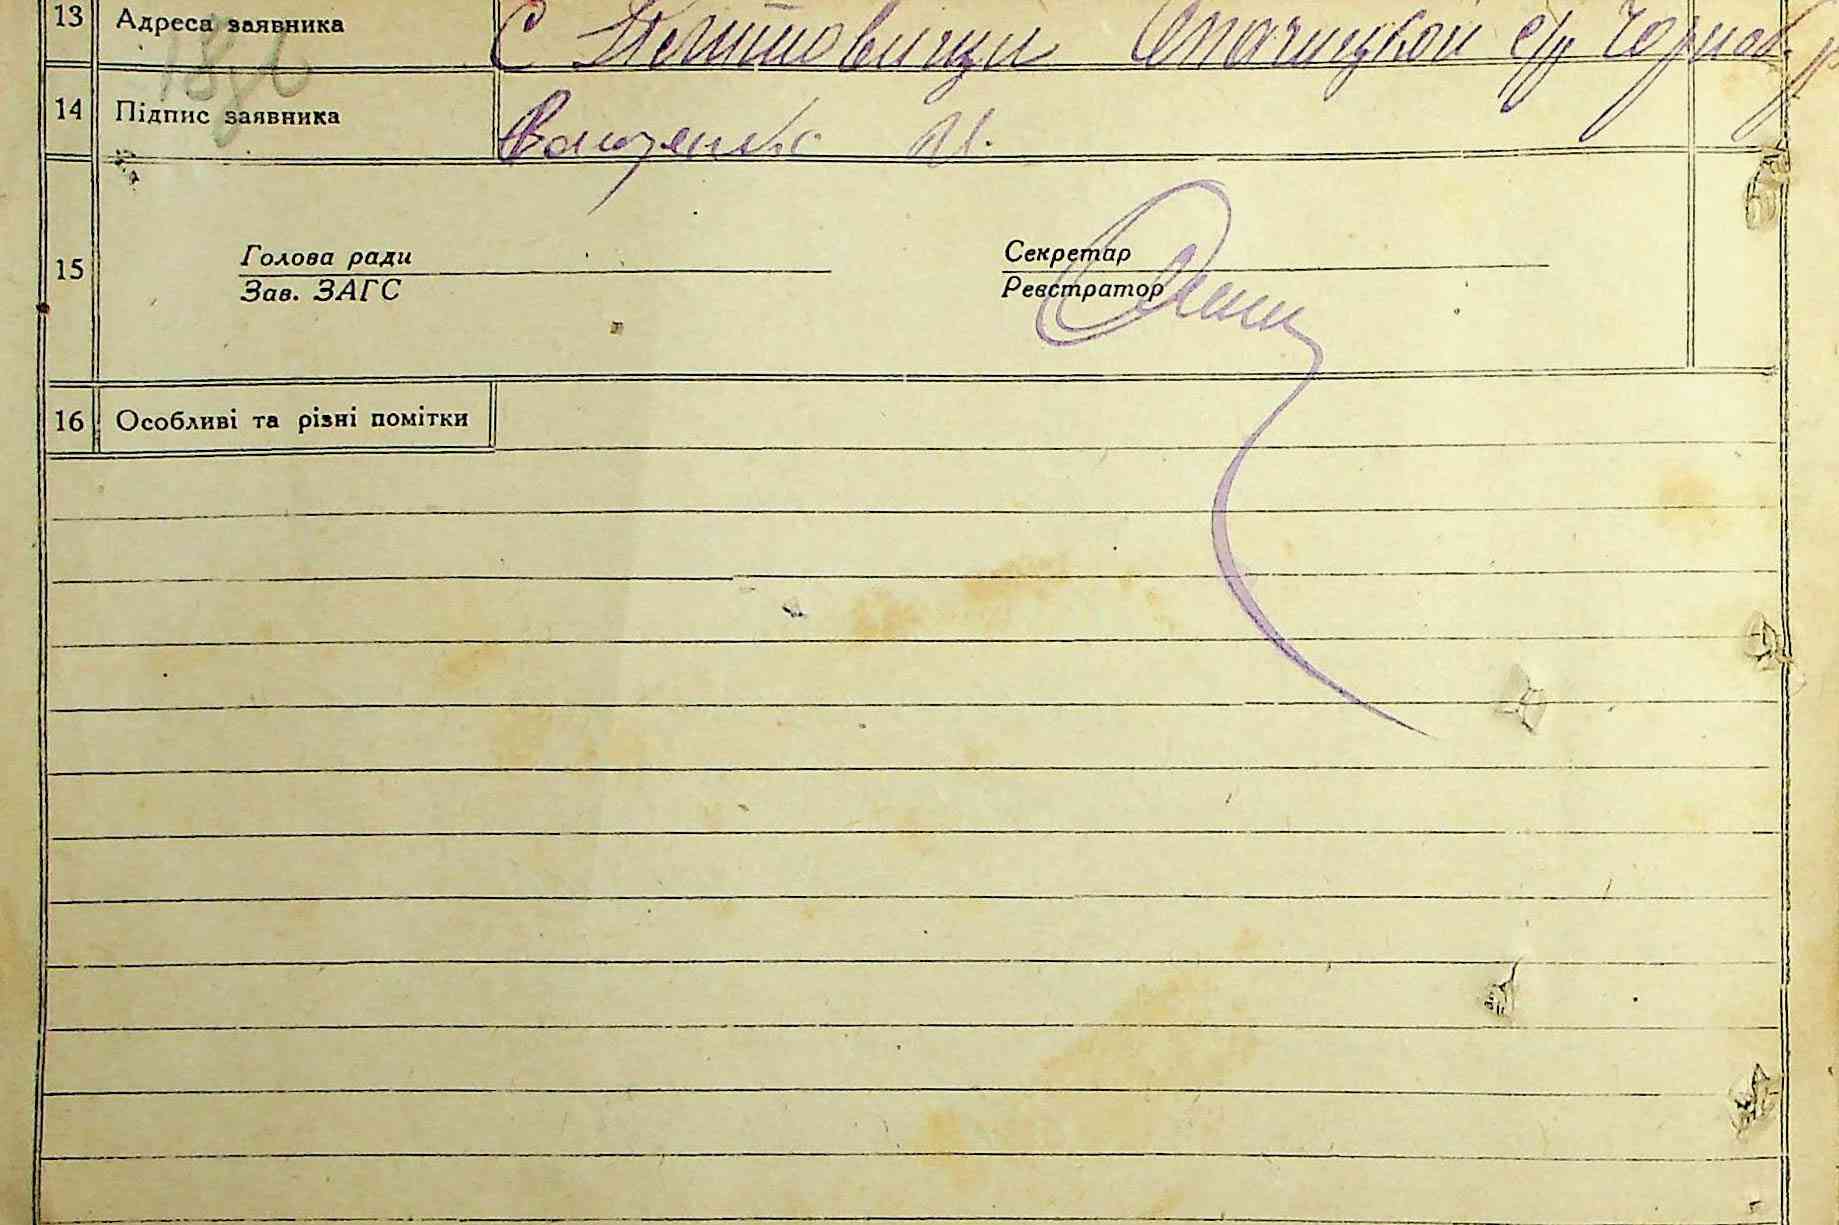 13 Адреса заявника С Опачицкой с/р Чорноб р
14 Підпис заявника Ващенко И.
15 Голова ради Секретар
Зав. ЗАГС Реєстратор
16 Особливі та різні помітки